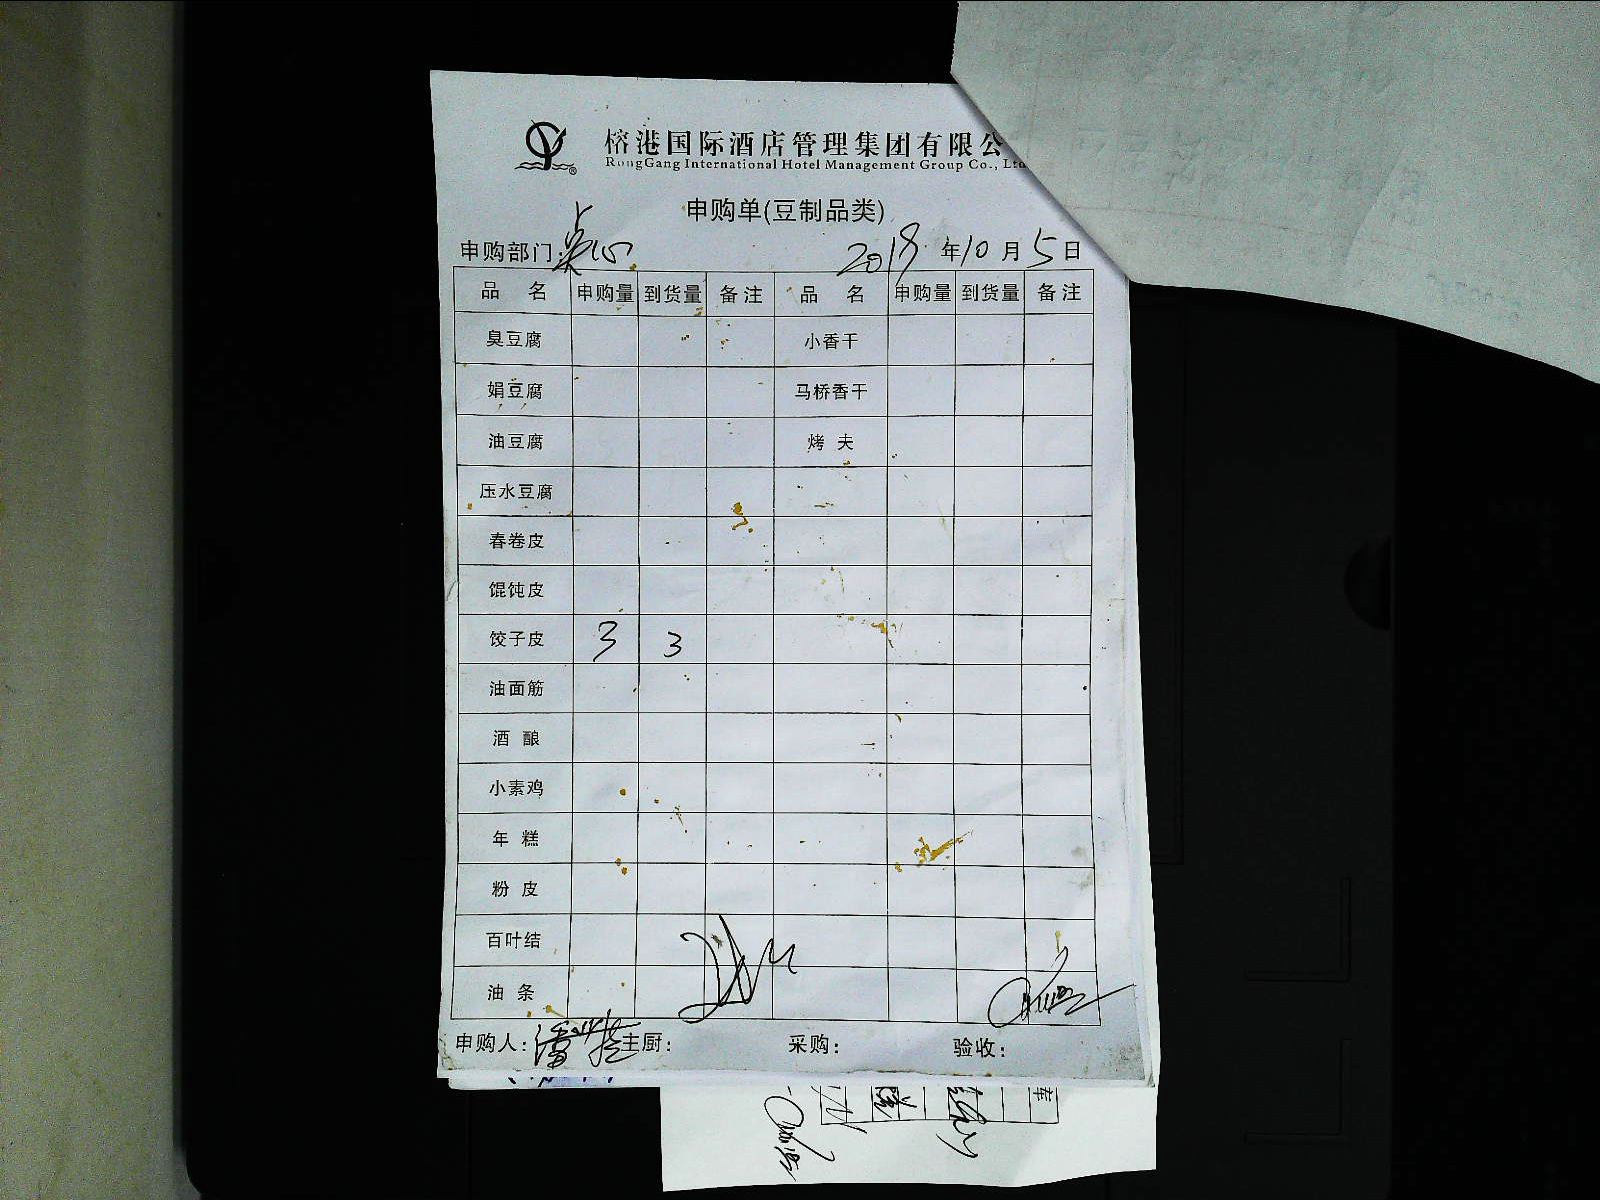 榕港国际酒店管理集团有限公
RongGang International Hotel Management Group Co., Ltd
申购单(豆制品类)
申购部门: 点心 2018年10月5日
品 名 申购量 到货量 备注 品 名 申购量 到货量 备注
臭豆腐 小香干
娟豆腐 马桥香干
油豆腐 烤 夫
压水豆腐
春卷皮
馄饨皮
饺子皮 3 3
油面筋
酒 酿
小素鸡
年 糕
粉 皮
百叶结
油 条
申购人: 主厨: 采购: 验收:
库